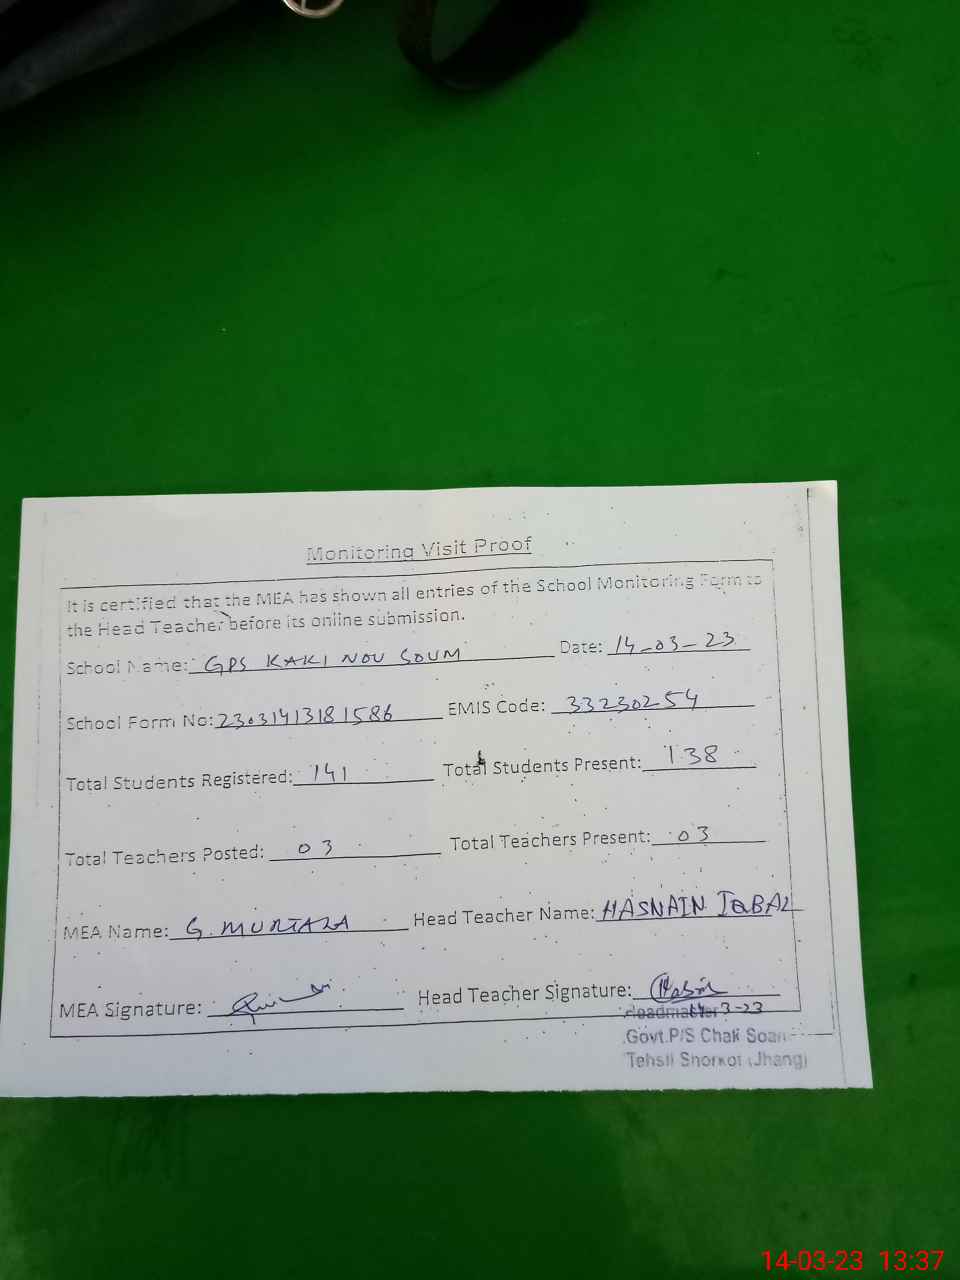 Monitoring Visit Proof
It is certified that the MEA has shown all entries of the School Monitoring Form to
the Head Teacher before its online submission.
School Name: GPS KAKI NOU SOUM Date: 14-03-23
School Form No: 23031413181586 EMIS Code: 33230254
Total Students Registered: 141 Total Students Present: 138
Total Teachers Posted: 03 Total Teachers Present: 03
MEA Name: G. MURTAZA Head Teacher Name: HASNAIN IQBAL
MEA Signature: Head Teacher Signature:
Headmaster 3-23
Govt.P/S Chak Soan
Tehsil Shorkot (Jhang)
14-03-23 13:37